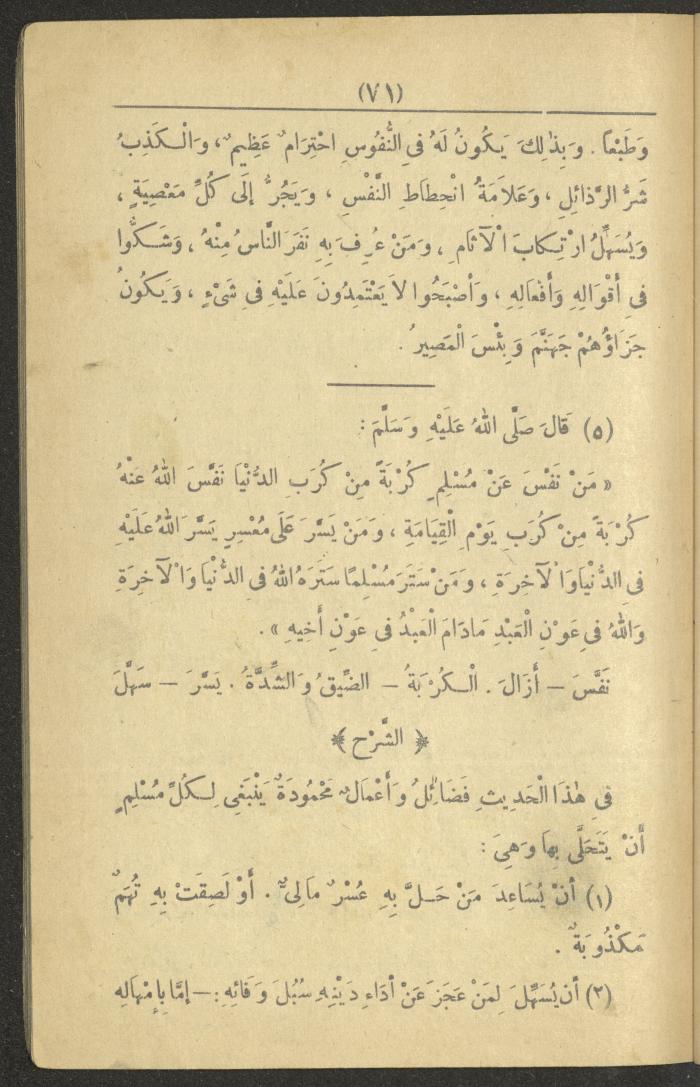 (٧١)
وَطَبْعاً . وَبِذٰلِكَ يَكُونُ لَهُ فِي النُّفُوسِ احْتِرَامٌ عَظِيمٌ ، وَالْكَذِبُ
شَرُّ الرَّذائِلِ ، وَعَلاَمَةُ انْحِطاَطِ النَّفْسِ ، وَيَجُرُّ إِلَى كُلِّ مَعْصِيَةٍ ،
وَيُسَهِّلُ ارْتِكابَ الْآثَامِ ، وَمَنْ عُرِفَ بِهِ نَفَرَ النَّاسُ مِنْهُ ، وَشَكُّوا
فِي أَقْوَالِهِ وَأَفْعَالِهِ ، وَأَصْبَحُوا لاَ يَعْتَمِدُونَ عَلَيْهِ فِي شَىْءٍ ، وَيَكُونُ
جَزَاؤُهُمْ جَهَنَّمَ وَبِئْسَ الْمَصِيرُ .
(٥) قَالَ صَلَّى اللهُ عَلَيْهِ وَسَلَّمَ :
« مَنْ نَفَّسَ عَنْ مُسْلِمٍ كُرْبَةً مِنْ كُرَبِ الدُّنْيَا نَفَّسَ اللهُ عَنْهُ
كُرْبَةً مِنْ كُرَبِ يَوْمِ الْقِيَامَةِ ، وَمَنْ يَسَّرَ عَلَى مُعْسِرٍ يَسَّرَ اللهُ عَلَيْهِ
فِي الدُّنْيَا وَالْآخِرَةِ ، وَمَنْ سَتَرَ مُسْلِمًا سَتَرَهُ اللهُ فِي الدُّنْيَا وَالْآخِرَةِ
وَاللهُ فِي عَوْنِ الْعَبْدِ مَادَامَ الْعَبْدُ فِي عَوْنِ أَخِيهِ » .
نَفَّسَ — أَزَالَ . الْكُرْبَةُ — الضِّيقُ وَالشِّدَّةُ . يَسَّرَ — سَهَّلَ
﴿ الشَّرْح ﴾
فِي هٰذَا الْحَدِيثِ فَضَائِلُ وَأَعْمَالٌ مَحْمُودَةٌ يَنْبَغِي لِكُلِّ مُسْلِمٍ
أَنْ يَتَحَلَّى بِهَا وَهِيَ :
(١) أَنْ يُسَاعِدَ مَنْ حَلَّ بِهِ عُسْرٌ مَالِىٌّ . أَوْ لَصِقَتْ بِهِ تُهَمٌ
مَكْذُوبَةٌ .
(٢) أَن يُسَهِّلَ لِمَنْ عَجَزَ عَنْ أَدَاءِ دَيْنِهِ سُبُلَ وَفَائِهِ : — إِمَّا بِإِمْهَالِهِ